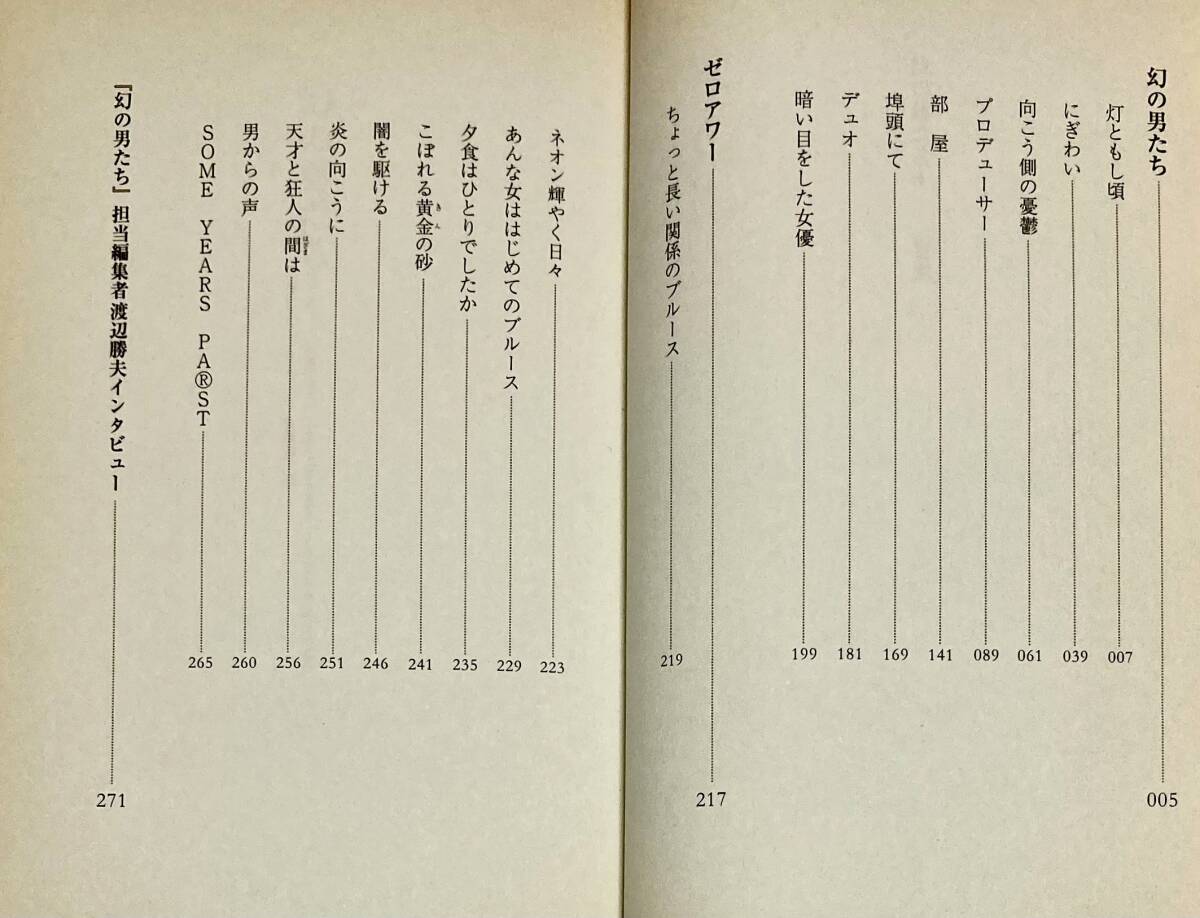 幻の男たち 005
灯ともし頃 007
にぎわい 039
向こう側の憂鬱 061
プロデューサー 089
部屋 141
埠頭にて 169
デュオ 181
暗い目をした女優 199
ゼロアワー 217
ちょっと長い関係のブルース 219
ネオン輝やく日々 223
あんな女ははじめてのブルース 229
夕食はひとりでしたか 235
こぼれる黄金の砂 241
きん
闇を駆ける 246
炎の向こうに 251
天才と狂人の間は 256
男からの声 260
SOME YEARS PAⓇST 265
『幻の男たち』担当編集者 渡辺勝夫インタビュー 271